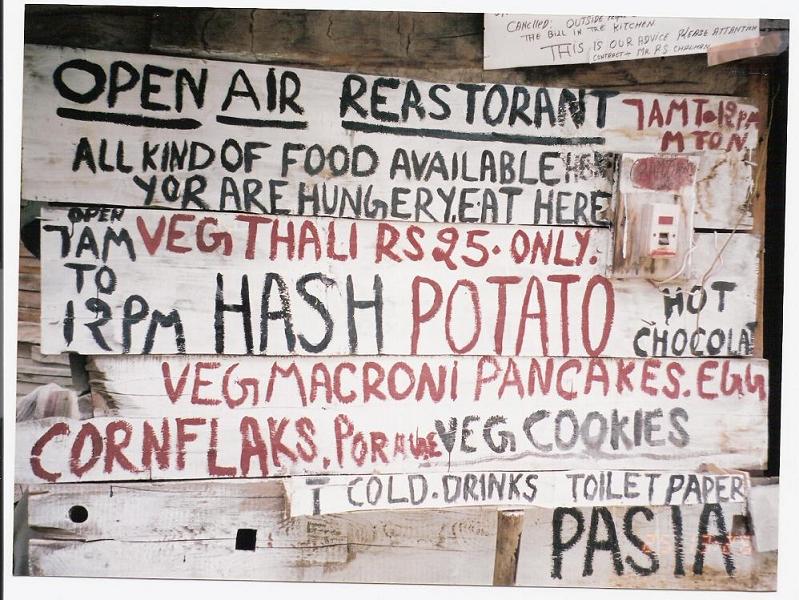 CANCLLED: OUTSIDE
THE BILL IN THE KITCHEN
THIS IS OUR ADVICE PLEASE ATTANTAN
CONTRACT - MR. P.S CHALHAN
OPEN AIR REASTORANT
7AM To 12PM
M TO N.
ALL KIND OF FOOD AVAILABLE HERE
YOR ARE HUNGERY.EAT HERE
OPEN
7AM
TO
12PM
VEG THALI RS 25. ONLY.
HASH POTATO
HOT
CHOCOLAT
VEG MACRONI PANCAKES. EGG
CORNFLAKS. PORAGE VEG COOKIES
T COLD.DRINKS TOILET PAPER
PASTA